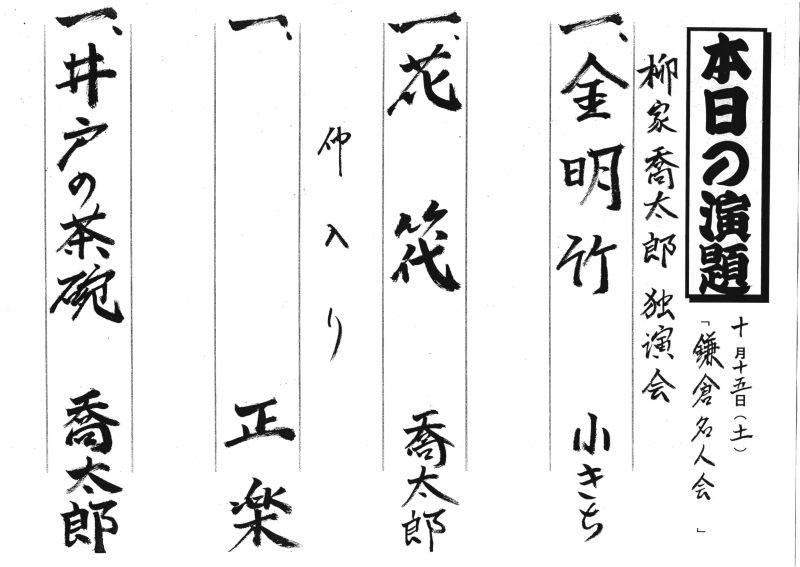 本日の演題
十月十五日（土）
「鎌倉名人会」
柳家喬太郎 独演会
一、金明竹 小きち
一、花筏 喬太郎
仲入り
一、 正楽
一、井戸の茶碗 喬太郎